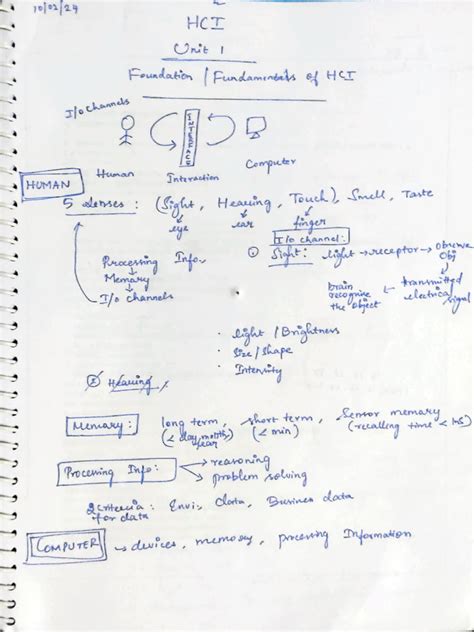 10/02/24
HCI
Unit 1
Foundation / Fundamentals of HCI
I/o Channels
INTERFACE
Human Interaction Computer
HUMAN
5 senses: (Sight, Hearing, Touch), Smell, Taste
eye ear finger
I/o channel:
① Sight: light → receptor → observe Obj
transmitted electrical signal
brain recognise the object
Processing Info.
Memory
I/o channels
· light / Brightness
· Size / Shape
· Intensity
② Hearing
Memory: long term, short term, Sensor memory
(< day, month, year) (< min) (recalling time < ms)
Processing Info: → reasoning
→ problem solving
2 criteria for data : Envi. data, Busines data
COMPUTER → devices, memory, processing Information